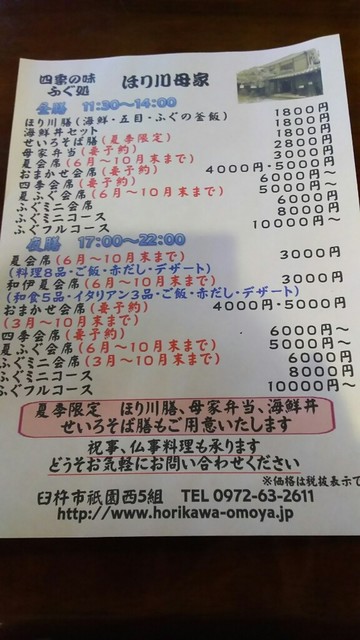 四季の味
ふぐ処 ほり川母家
昼膳 11:30~14:00
ほり川膳(海鮮・五目・ふぐの釜飯) 1800円
海鮮丼セット 1800円
せいろそば膳(夏季限定) 1800円
母家弁当(要予約) 2800円
夏会席(6月~10月末まで) 3000円
おまかせ会席(要予約) 4000円・5000円
四季会席(要予約) 6000円~
夏ふぐ会席(6月~10月末まで) 5000円~
ふぐミニ会席 6000円
ふぐミニコース 8000円
ふぐフルコース 10000円~
夜膳 17:00~22:00
夏会席(6月~10月末まで) 3000円
(料理8品・ご飯・赤だし・デザート)
和伊夏会席(6月~10月末まで) 3000円
(和食5品・イタリアン3品・ご飯・赤だし・デザート)
おまかせ会席(要予約) 4000円・5000円
(3月~10月末まで)
四季会席(要予約) 6000円~
夏ふぐ会席(6月~10月末まで) 5000円~
ふぐミニ会席(3月~10月末まで) 6000円
ふぐミニコース 8000円
ふぐフルコース 10000円~
夏季限定 ほり川膳、母家弁当、海鮮丼
せいろそば膳もご用意いたします
祝事、仏事料理も承ります
どうぞお気軽にお問い合わせください
※価格は税抜表示で
臼杵市祇園西5組 TEL 0972-63-2611
http://www.horikawa-omoya.jp